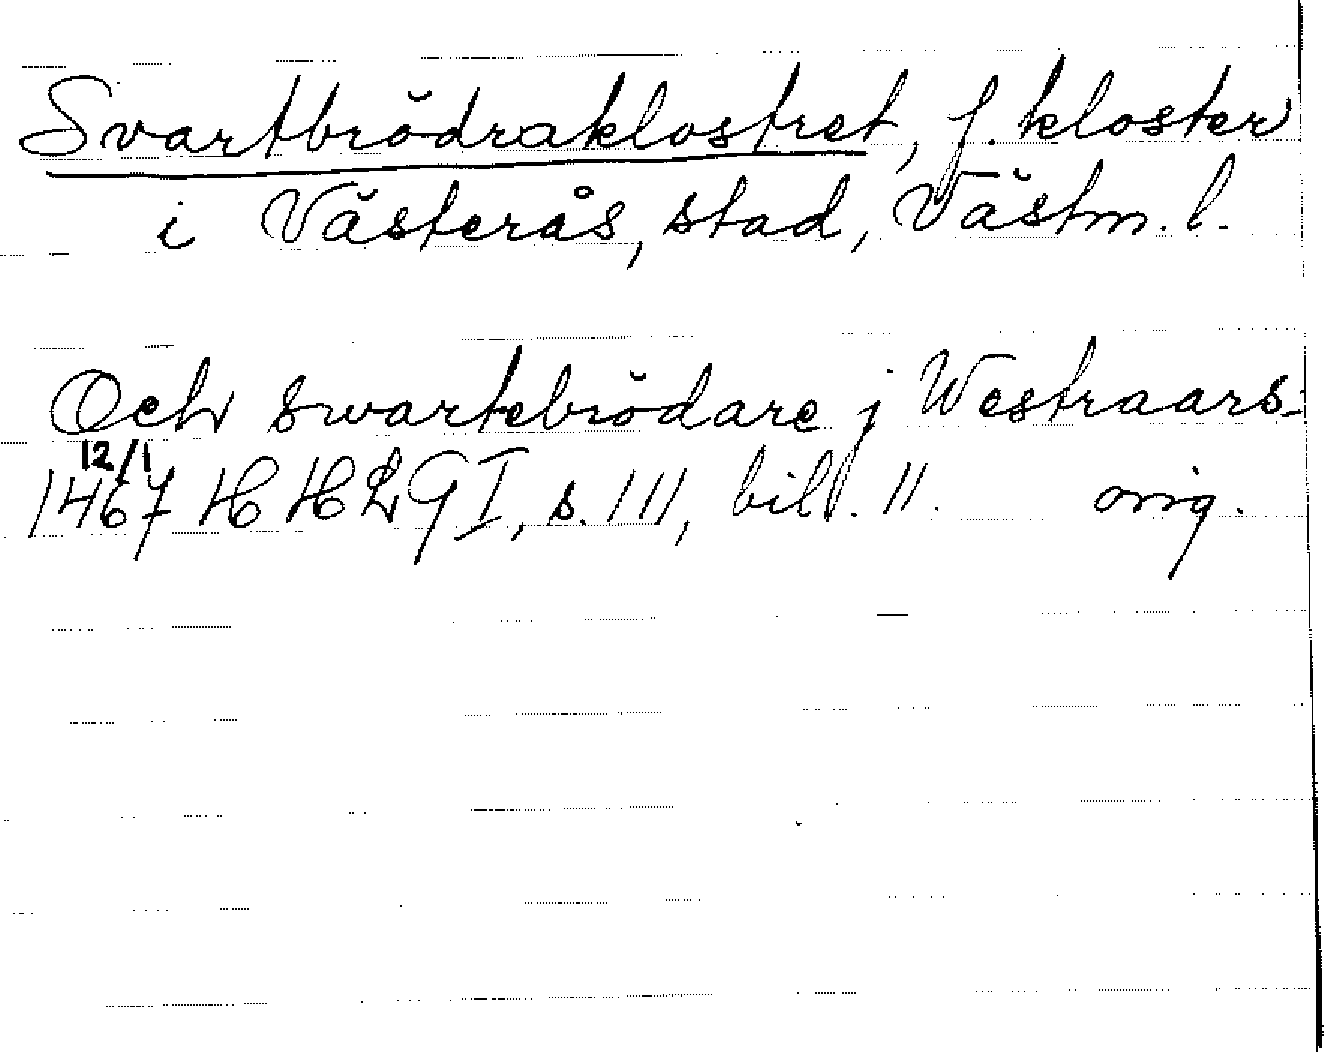 Svartbrödraklostret, f. kloster
i Västerås, stad, Västm. l.
Och swartebrödare j Westraars
12/1
1467 HH2GI, s. 111, bil. 11. orig.